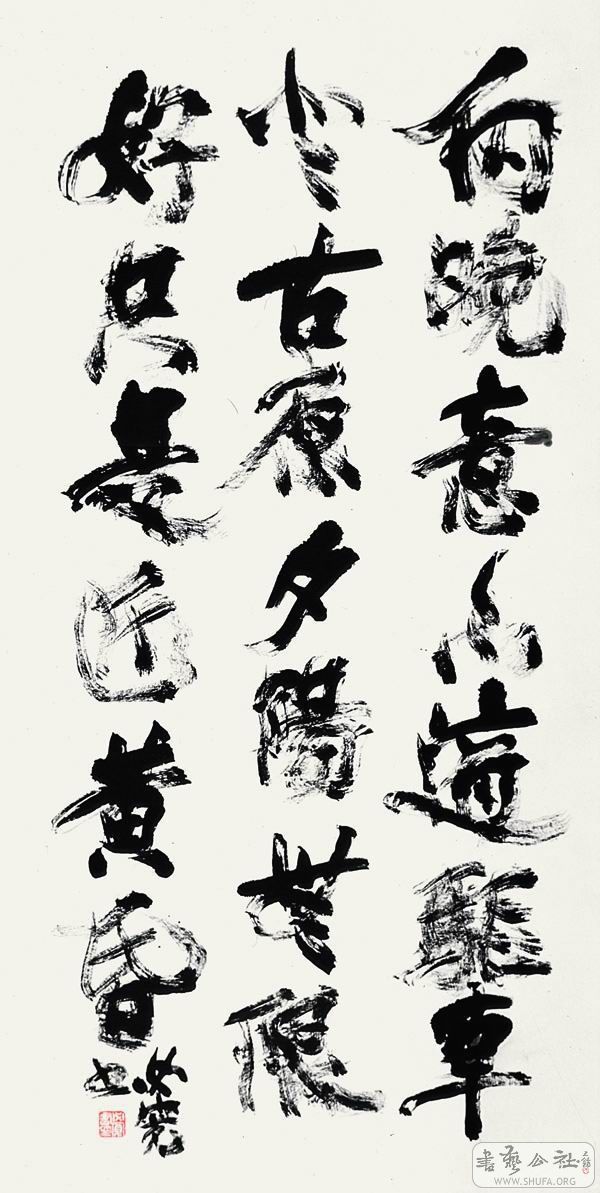 向晚意不適驅車
登古原夕陽無限
好只是近黄昏
書藝公社
WWW.SHUFA.ORG